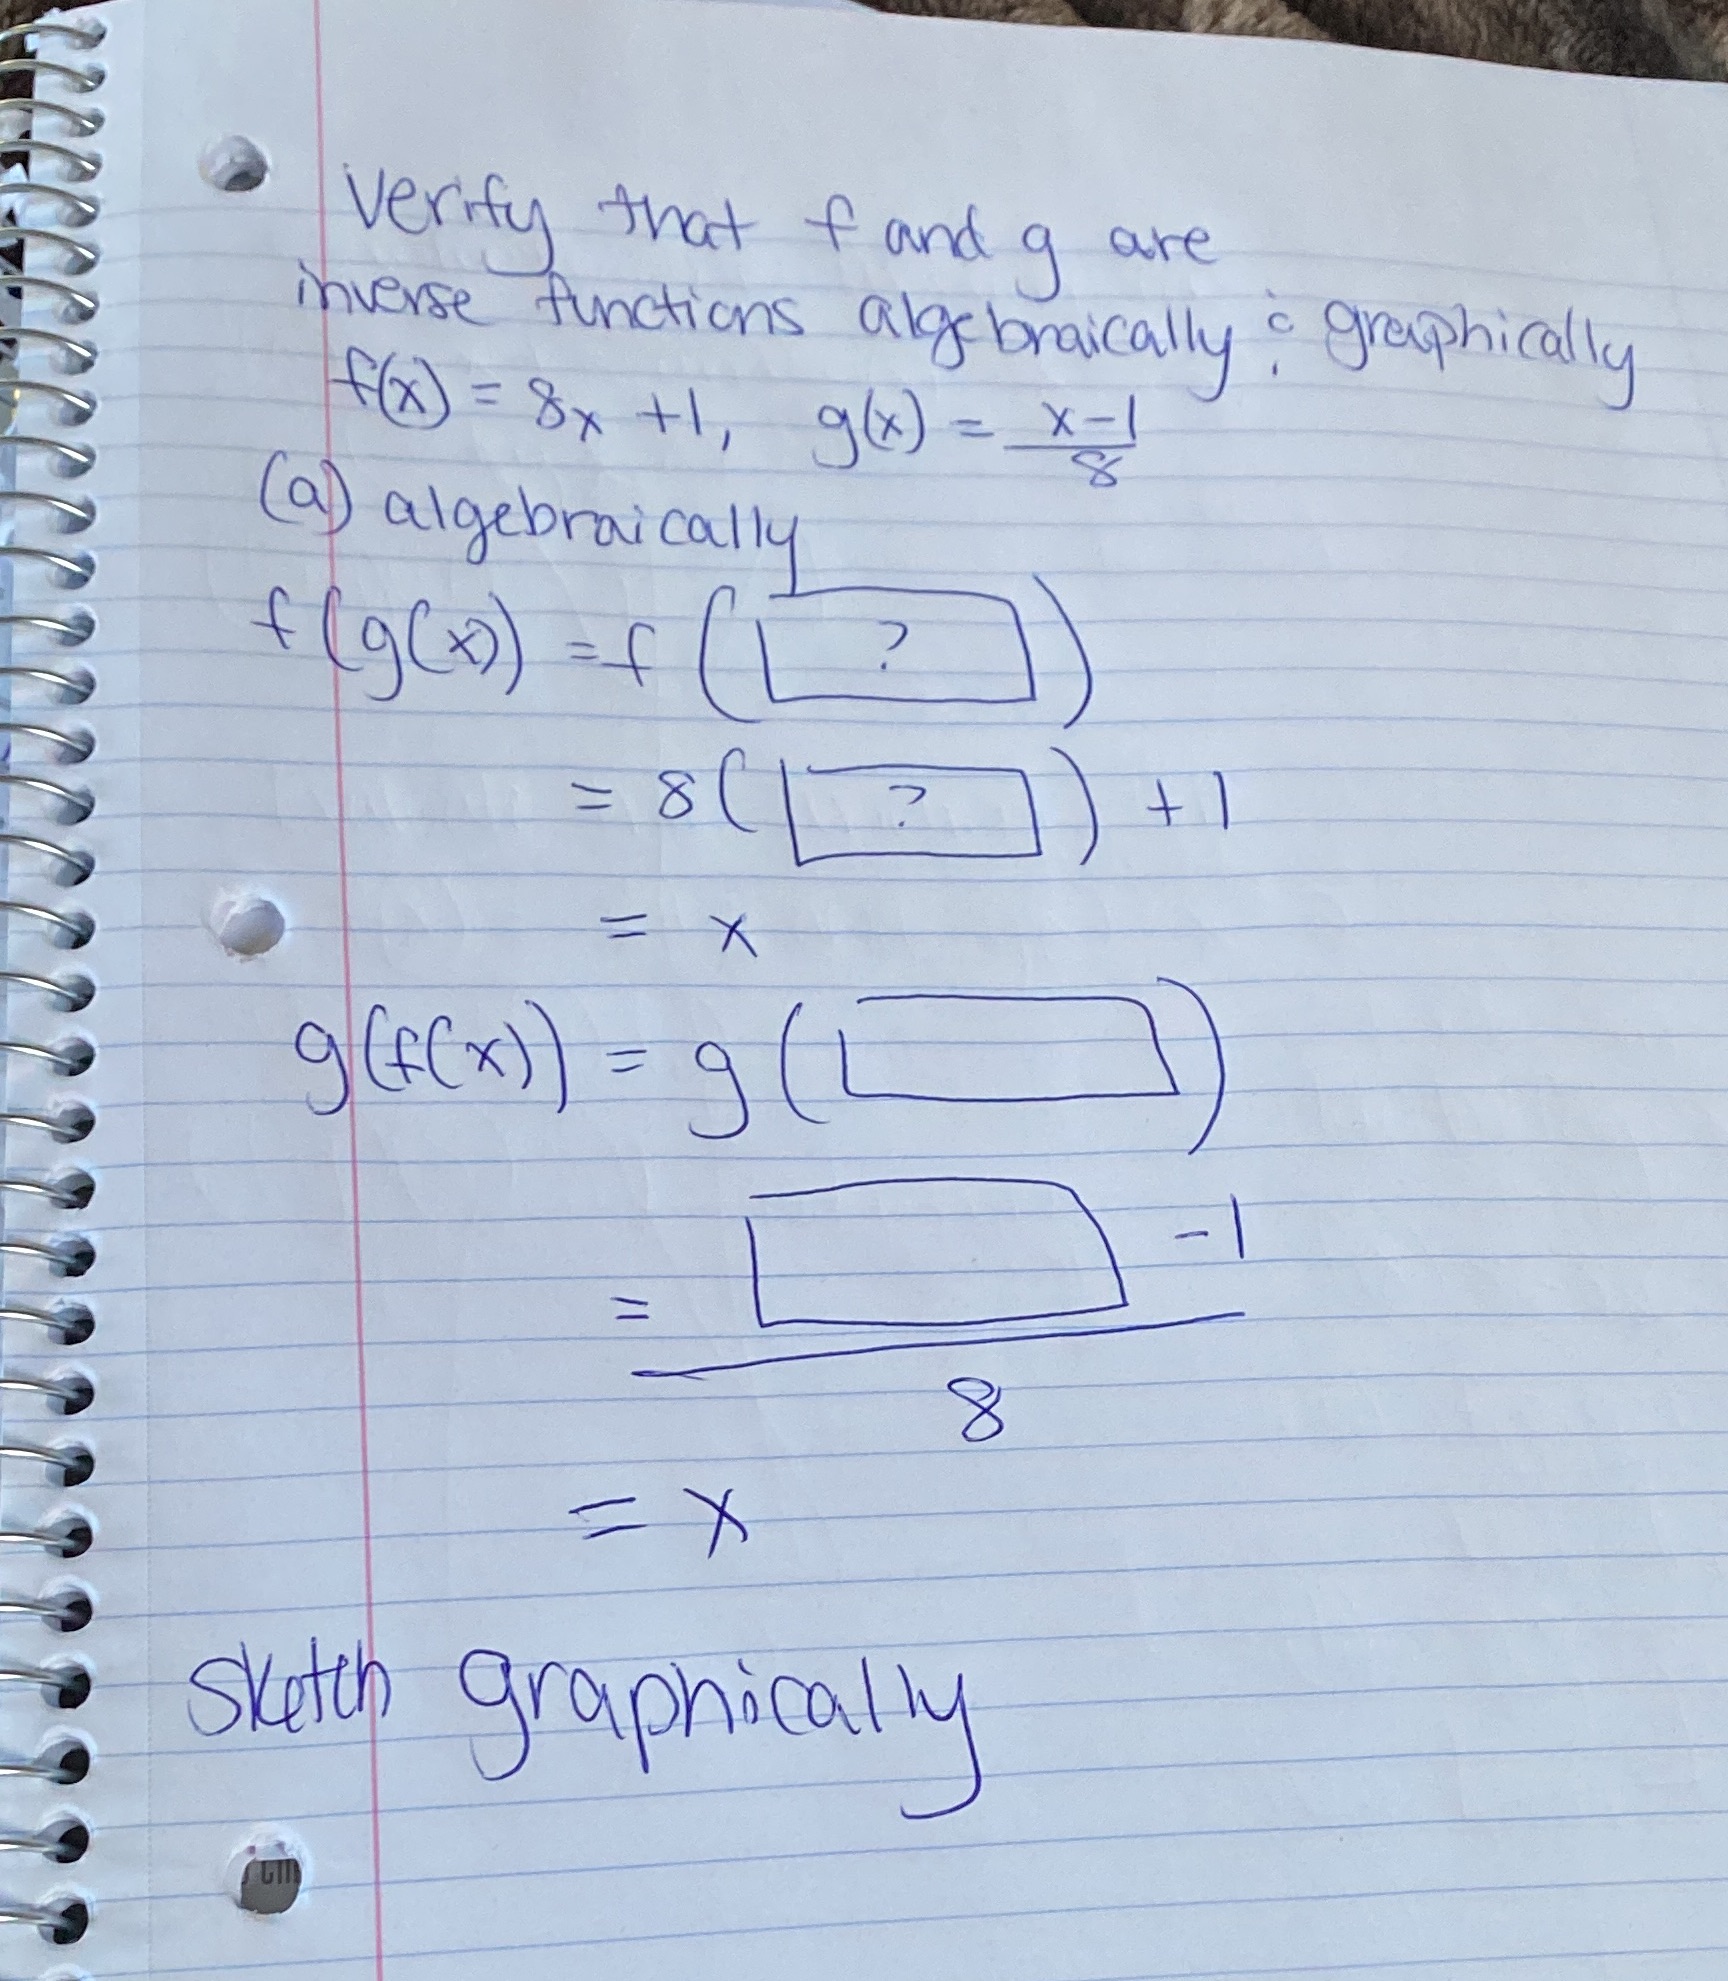 Verify that f and g are
inverse functions algebraically & graphically
f(x) = 8x + 1, g(x) = x-1/8
(a) algebraically
f(g(x)) = f( ? )
= 8( ? ) + 1
= x
g(f(x)) = g( )
= -1
8
= x
Sketch graphically
cm